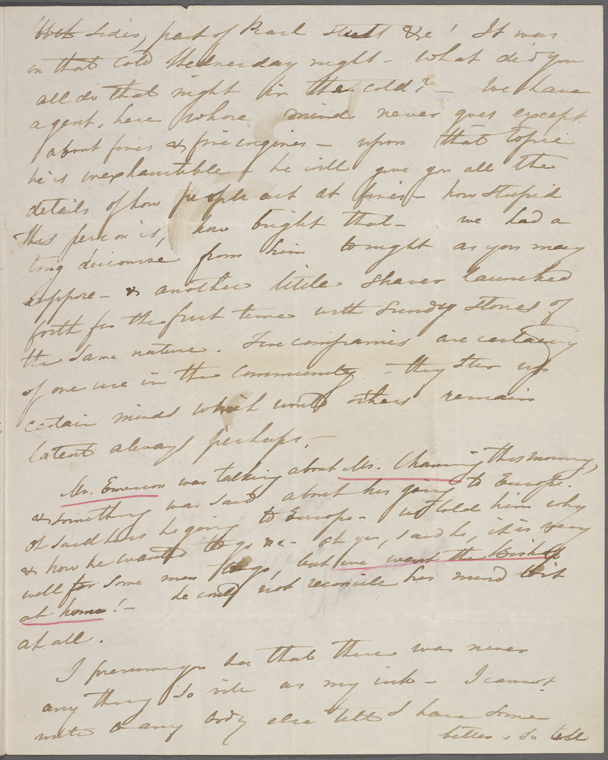 both sides, part of Pearl street &c! It was
on that cold Wednesday night - What did you
all do that night in the cold? - We have
a gent. here whose mind never goes except
about fires & fire engines - upon that topic
he is inexhaustible & he will give you all the
details of how people act at fires - how stupid
this person is, how bright that - we had a
long discourse from him tonight as you may
suppose - & another little shaver launched
forth for the first time with sundry stories of
the same nature. Fire companies are certainly
of one use in the community - they stir up
certain minds which would others remain
latent always perhaps. -
Mr. Emerson was talking about Mr. Channing this morning,
& something was said about his going to Europe.
It said is he going to Europe - we told him why
& how he wanted to go, &c - oh yes, said he, it is very
well for some men to go, but we want the
at home! - he could not reconcile his mind to it
at all.
I presume you see that there was never
any thing so vile as my ink - I cannot
write to any body else till I have some
better, so tell